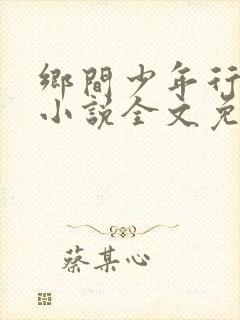 鄉間少年行
小說全文免
蔡某心